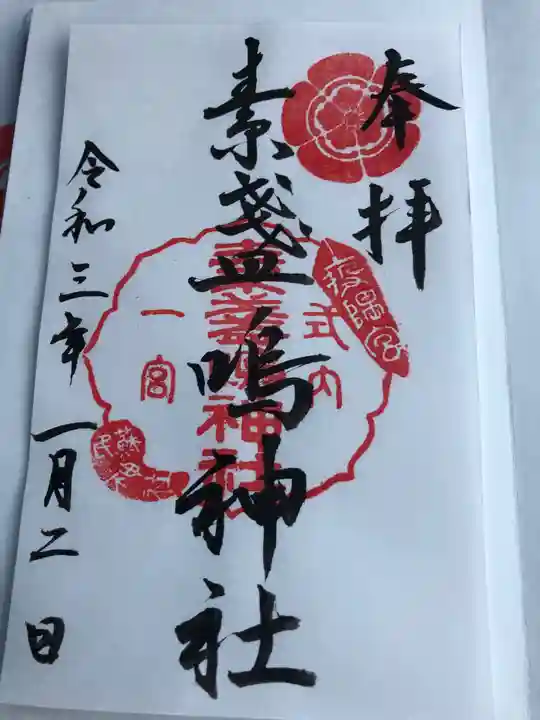 奉拝
素盞嗚神社
令和三年一月二日
式内
素盞嗚神社
一宮
疫隅
蘇民将来